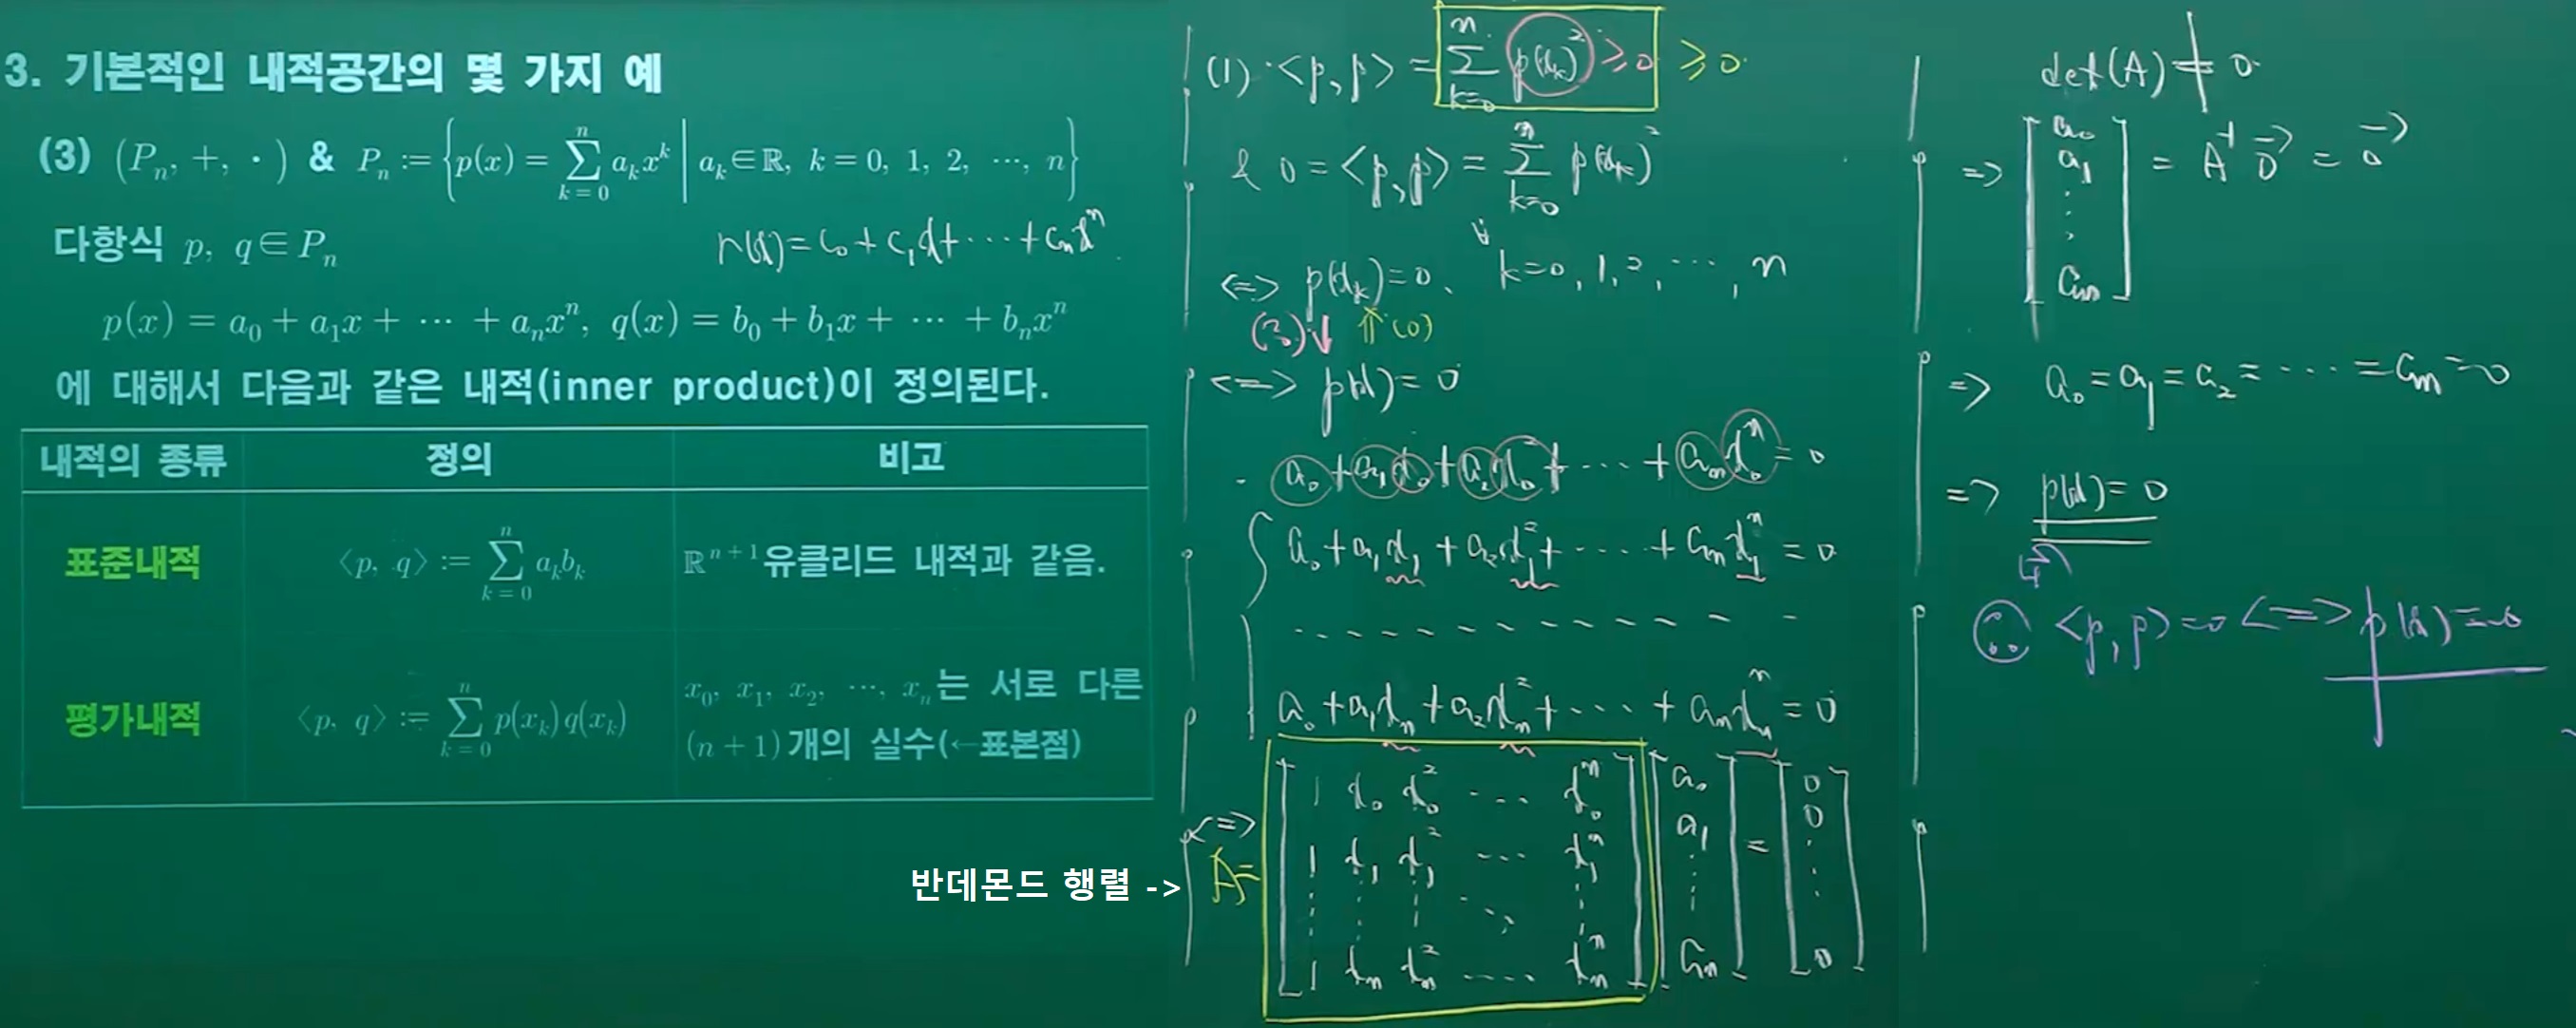 3. 기본적인 내적공간의 몇 가지 예
(3) (Pₙ, +, ·) & Pₙ := {p(x) = ∑_{k=0}^{n} aₖxᵏ | aₖ∈ℝ, k = 0, 1, 2, ⋯, n}
다항식 p, q∈Pₙ
r(x) = c₀ + c₁x + ⋯ + cₙxⁿ
p(x) = a₀ + a₁x + ⋯ + aₙxⁿ, q(x) = b₀ + b₁x + ⋯ + bₙxⁿ
에 대해서 다음과 같은 내적(inner product)이 정의된다.
내적의 종류 정의 비고
표준내적 ⟨p, q⟩ := ∑_{k=0}^{n} aₖbₖ ℝⁿ⁺¹유클리드 내적과 같음.
평가내적 ⟨p, q⟩ := ∑_{k=0}^{n} p(xₖ)q(xₖ) x₀, x₁, x₂, ⋯, xₙ는 서로 다른
(n+1)개의 실수(←표본점)
반데몬드 행렬 ->
(1) <p, p> = ∑_{k=0}^{n} p(xₖ)² ≥ 0 ≥ 0
& 0 = <p, p> = ∑_{k=0}^{n} p(xₖ)²
<=> p(xₖ) = 0, ∀ k = 0, 1, 2, ⋯, n
(3) ↓ ⇑ (0)
<=> p(x) = 0
a₀ + a₁x₀ + a₂x₀² + ⋯ + aₙx₀ⁿ = 0
a₀ + a₁x₁ + a₂x₁² + ⋯ + aₙx₁ⁿ = 0
- - - - - - - - - - - - -
a₀ + a₁xₙ + a₂xₙ² + ⋯ + aₙxₙⁿ = 0
1 x₀ x₀² ⋯ x₀ⁿ a₀ 0
<=> A= 1 x₁ x₁² ⋯ x₁ⁿ a₁ = 0
⋮ ⋮ ⋮ ⋱ ⋮ ⋮ ⋮
1 xₙ xₙ² ⋯ xₙⁿ aₙ 0
det(A) ≠ 0
=> [a₀ a₁ ⋮ aₙ] = A⁻¹ 0⃗ = 0⃗
=> a₀ = a₁ = a₂ = ⋯ = aₙ = 0
=> p(x) = 0
∴ <p, p> = 0 <=> p(x) = 0